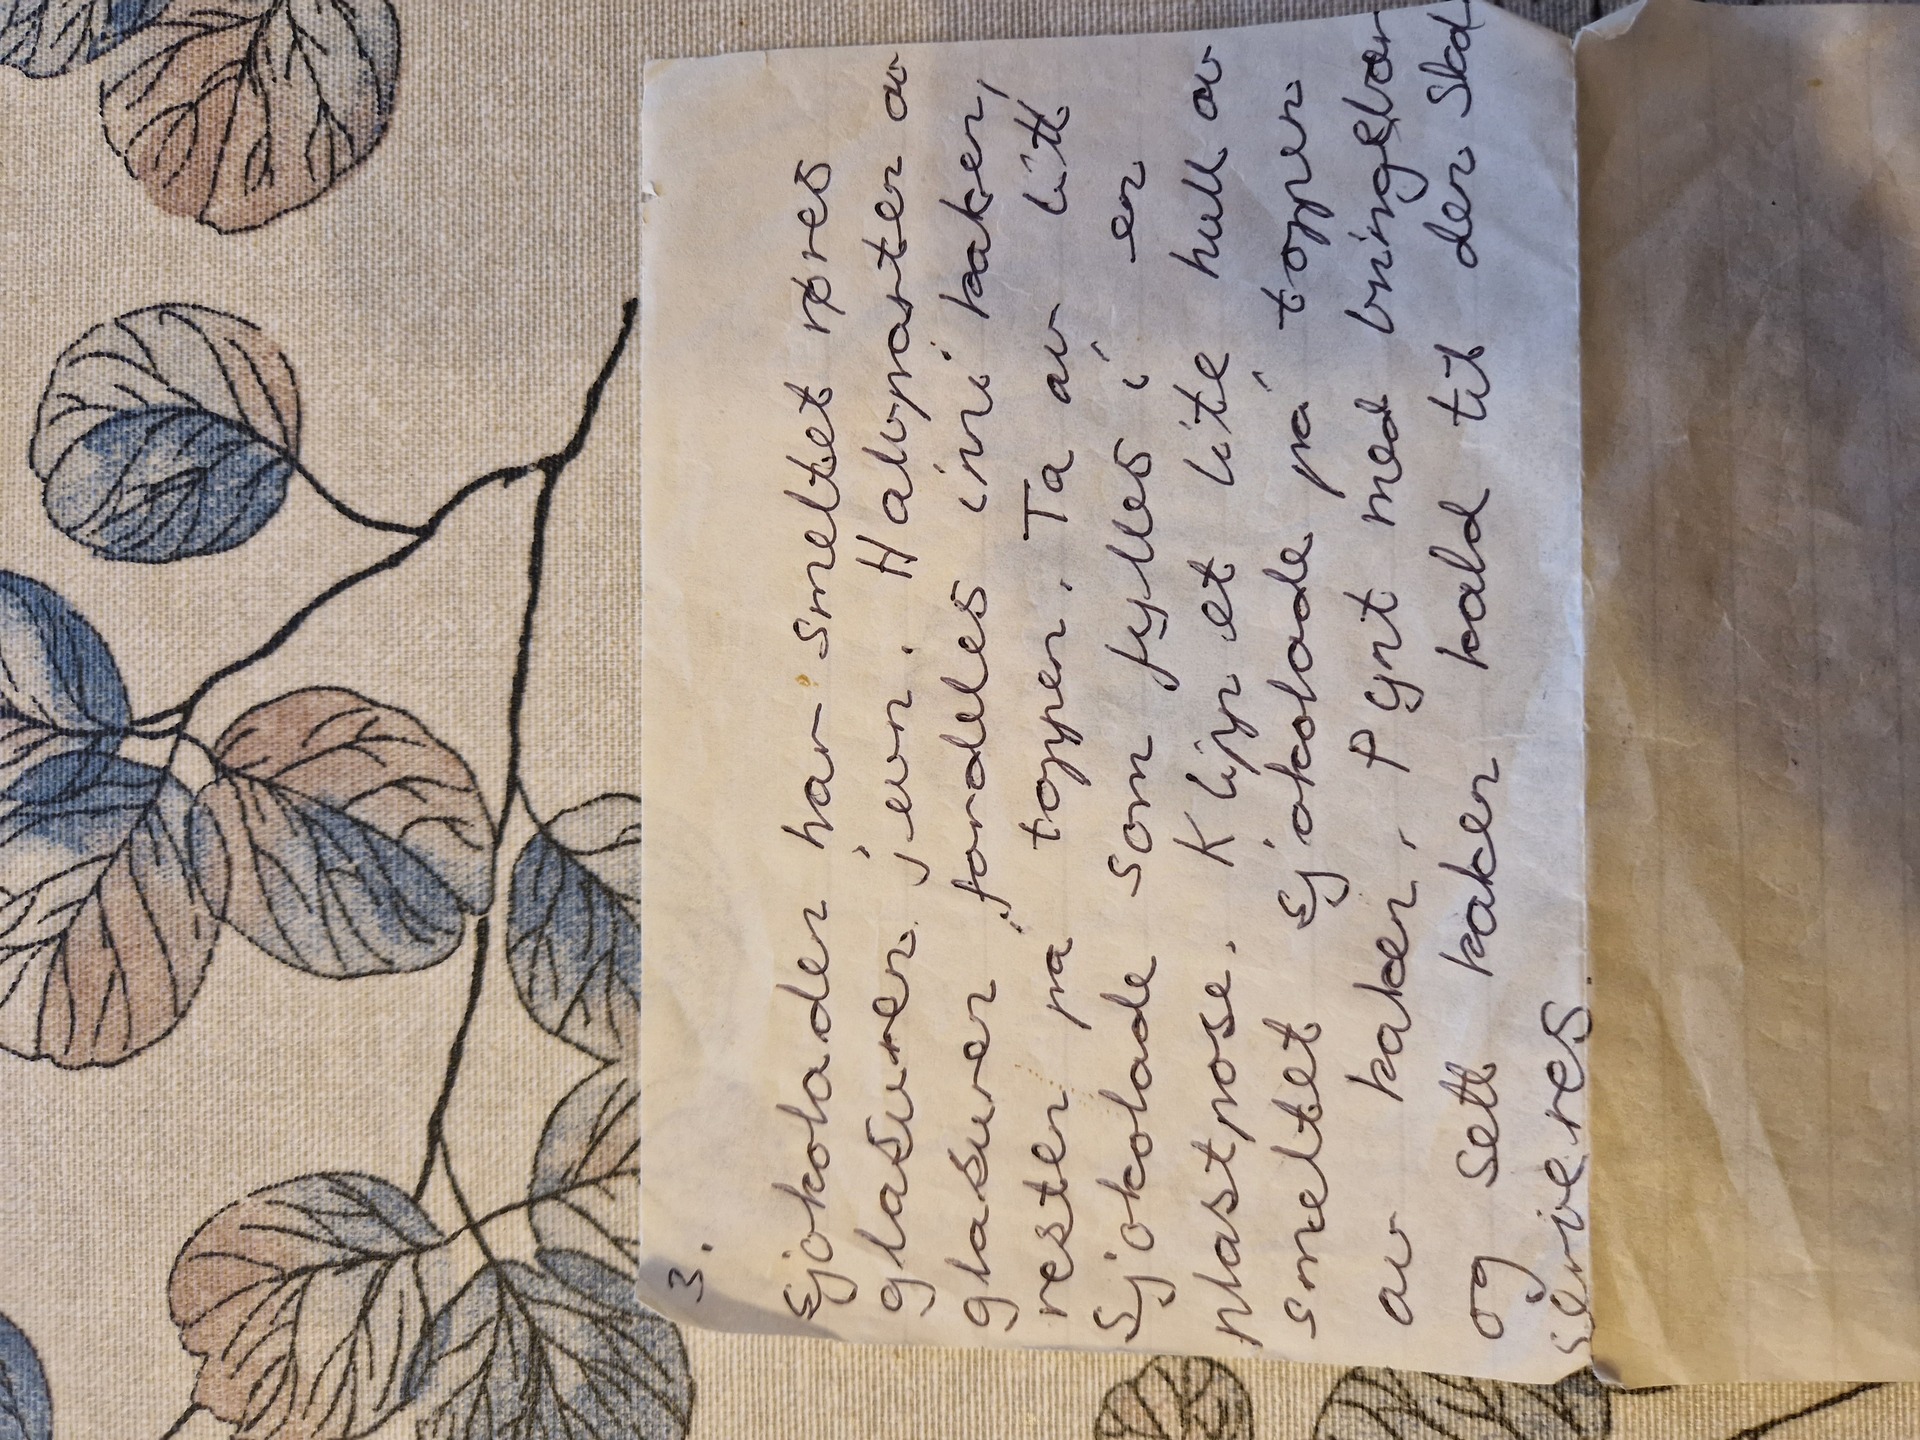 3.
sjokoladen har smeltet røres
glasuren jevn. Halvparten av
glasuren fordeles inni kaken,
resten på toppen. Ta av litt
Sjokolade som fylles i en
plastpose. Klipp et lite hull av
smeltet sjokolade på toppen
av kaken. Pynt med bringebær
og sett kaken kald til den skal
serveres.